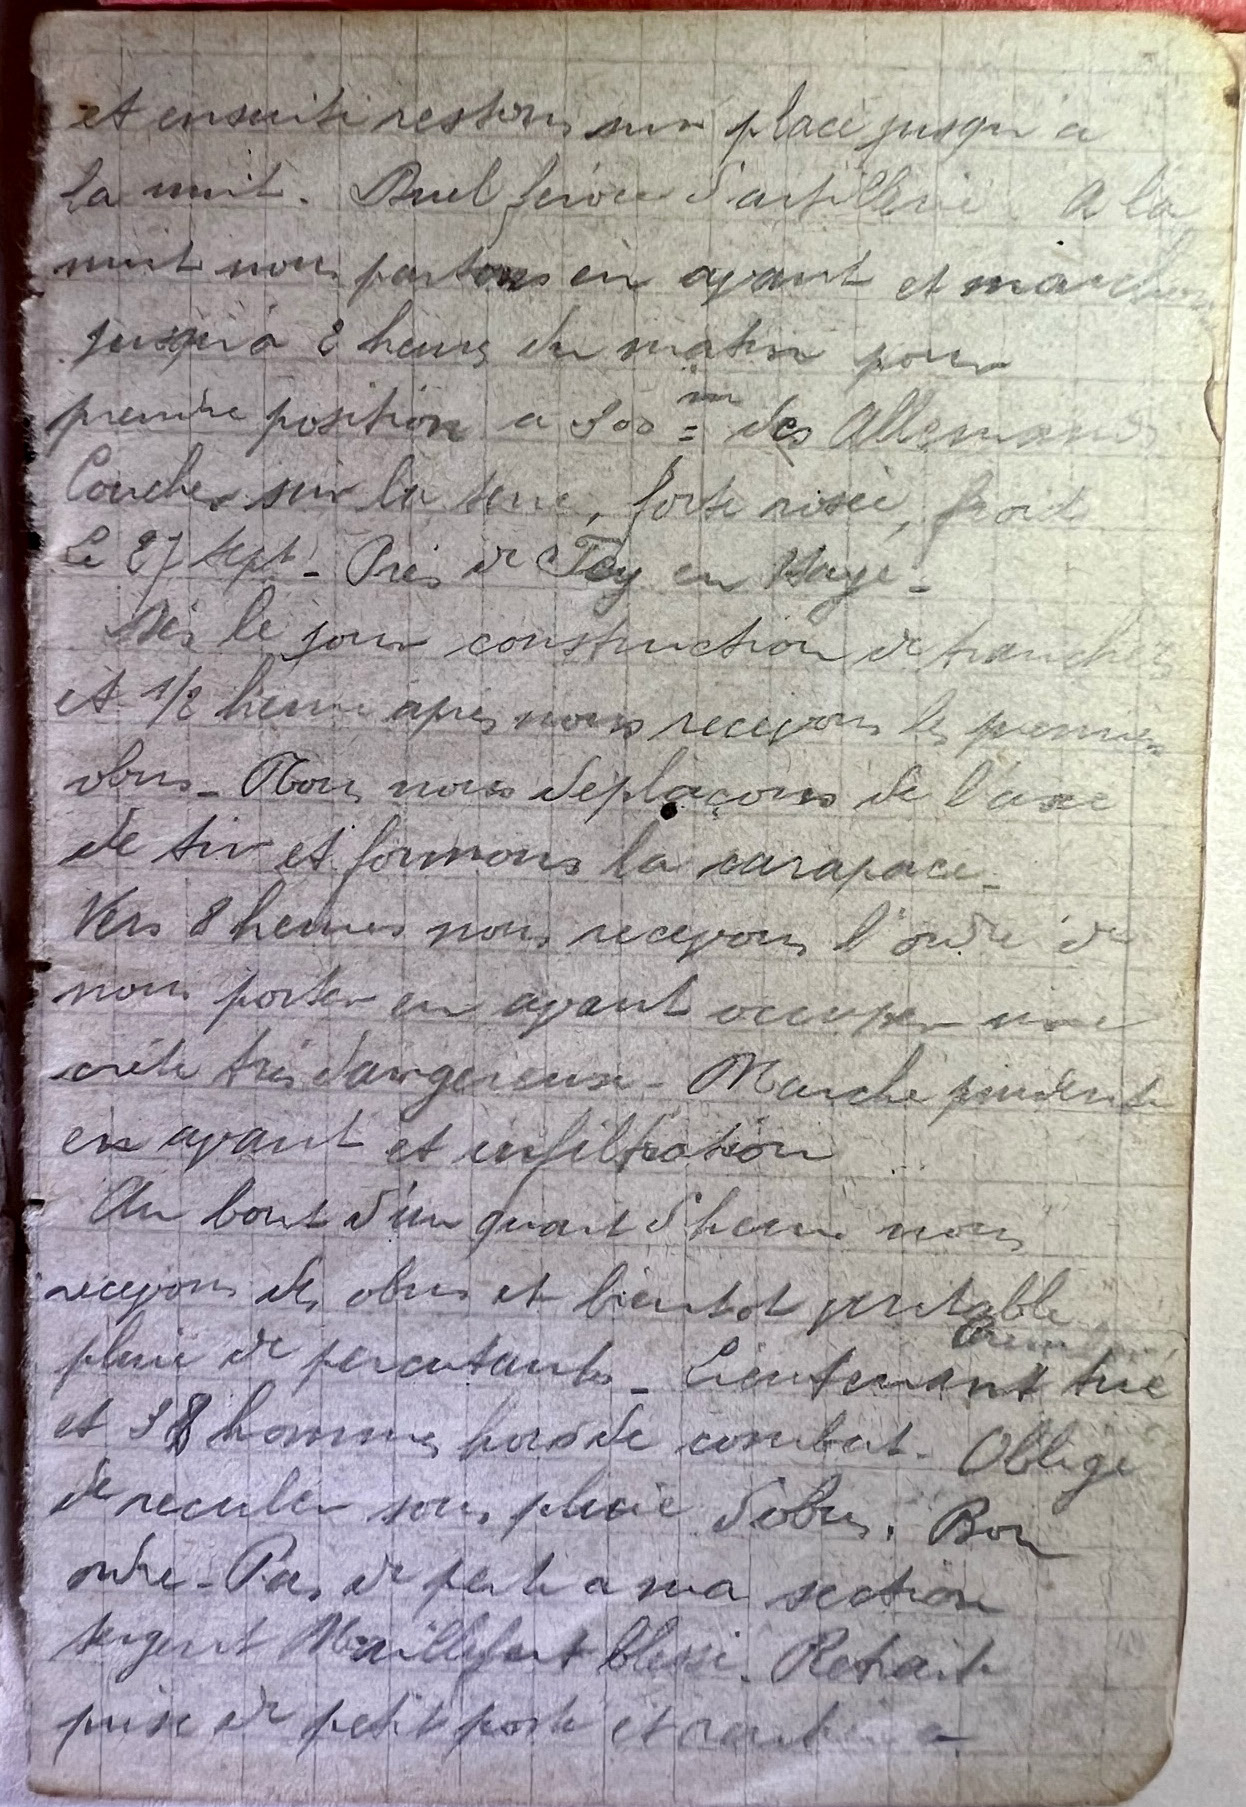 et ensuite restons sur place jusqu'à
la nuit. Duel féroce d'artillerie. A la
nuit nous partons en avant et marchons
jusqu'à 2 heures du matin pour
prendre position à 300 m des Allemands
Coucher sur la terre, forte rosée, froid
Le 27 sept - Près de Fey en Haye -
Dès le jour construction de tranchées
et 1/2 heure après nous recevons les premiers
obus - Nous nous déplaçons de l'axe
de tir et formons la carapace -
Vers 8 heures nous recevons l'ordre de
nous porter en avant occuper une
crête très dangereuse - Marche prudente
en avant et infiltration
Au bout d'un quart d'heure nous
recevons des obus et bientot veritable
pluie de percutants - Lieutenant tué
et 38 hommes hors de combat - Obligé
de reculer sous pluie d'obus. Bon
ordre - Pas de perte a ma section
sergent Maillefert blessé. Retraite
prise de petit poste et